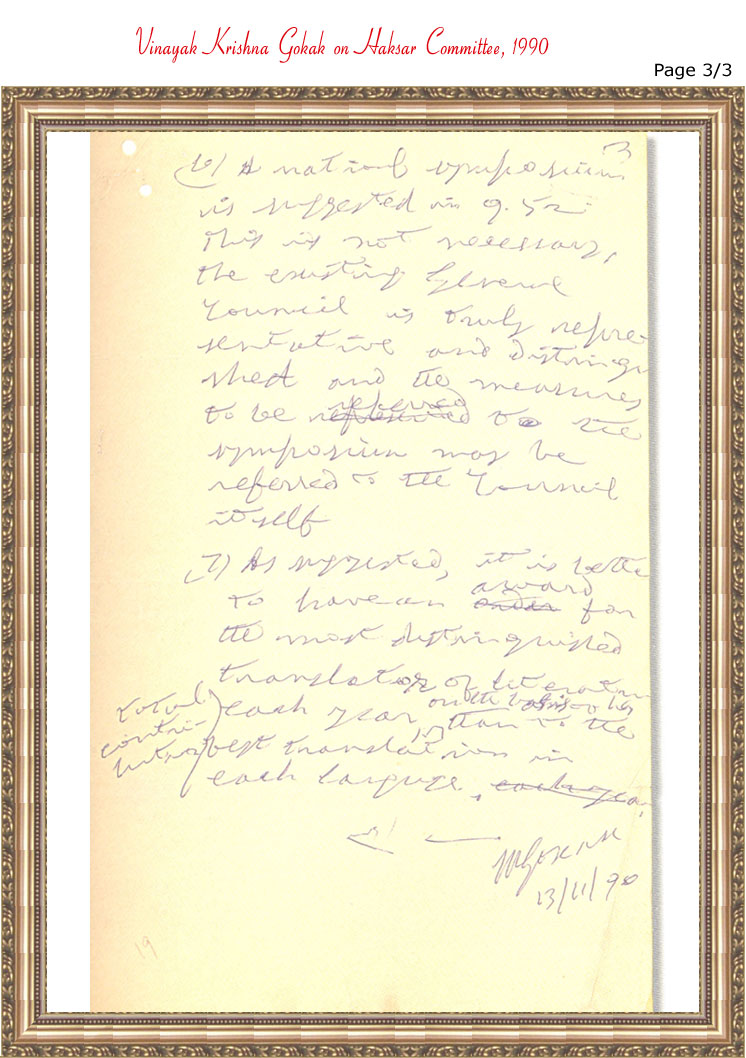 Vinayak Krishna Gokak on Haksar Committee, 1990
Page 3/3
3
6) A national symposium
is suggested in 9.52
This is not necessary,
the existing General
Council is truly repre-
sentative and distingui
shed and the measures
referred
to be to the
symposium may be
referred to the Council
itself
7) As suggested, it is bette
award
to have an for
the most distinguished
translator of literature
on the basis of his
total
contri-
bution
each year, than to the
best translation in
each language.
VKGokak
13/11/90
19